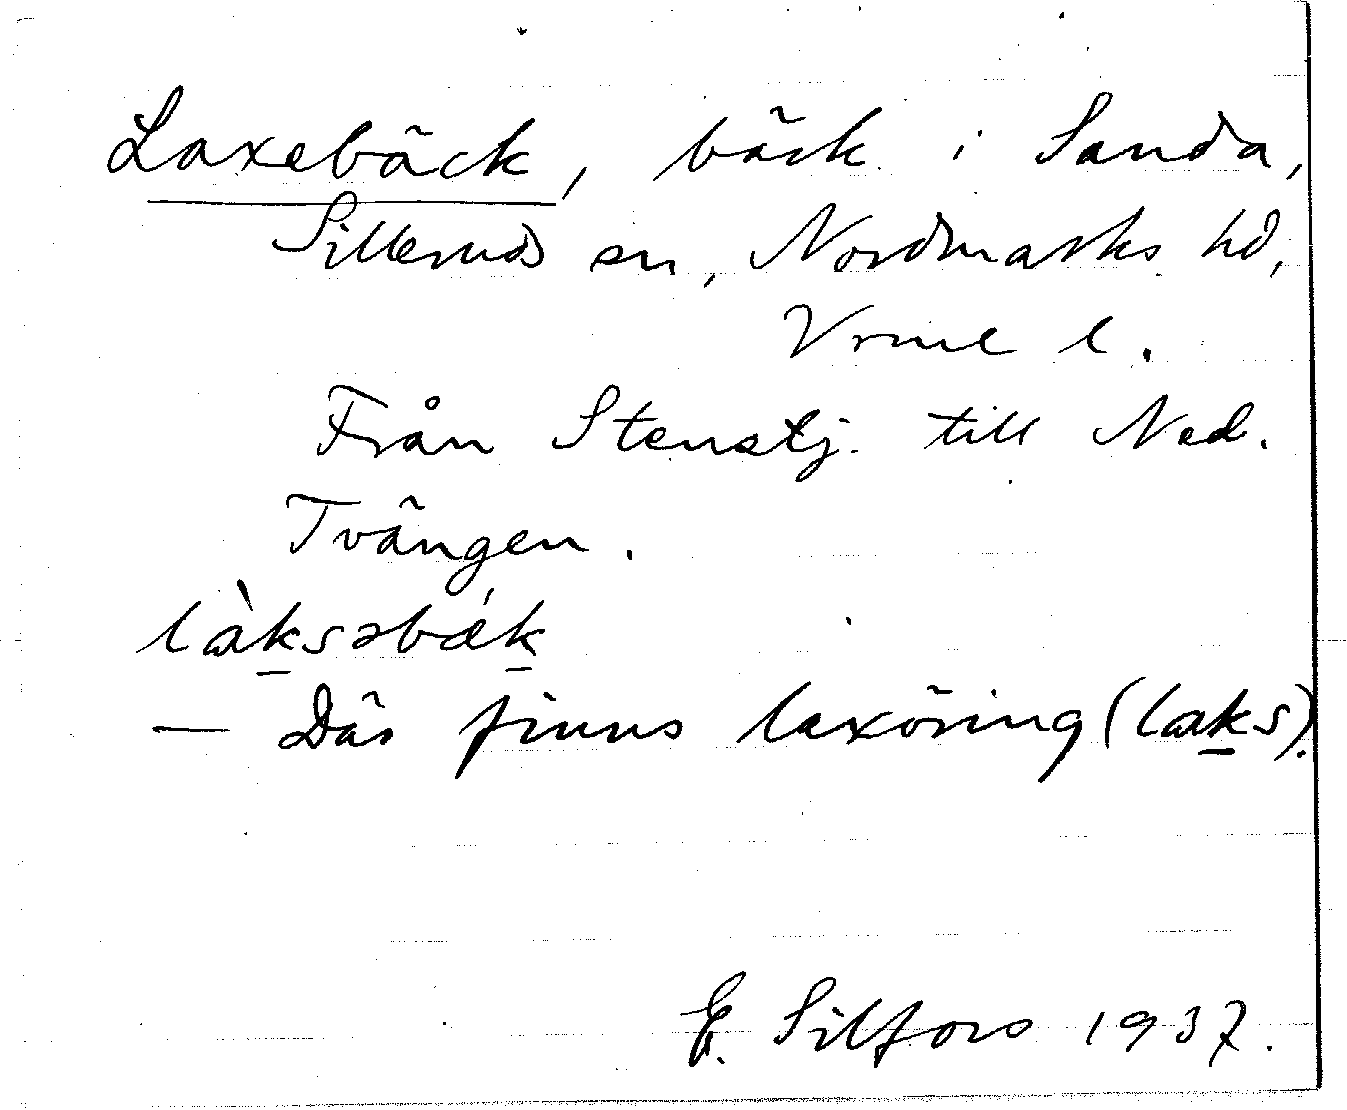 Laxebäck, bäck i Sanda,
Silleruds sn, Nordmarks hd,
Vrml l.
Från Stenstj. till Ned.
Tvängen.
làksəbǽk
— Där finns laxöring (laks).
E. Silfors 1937.